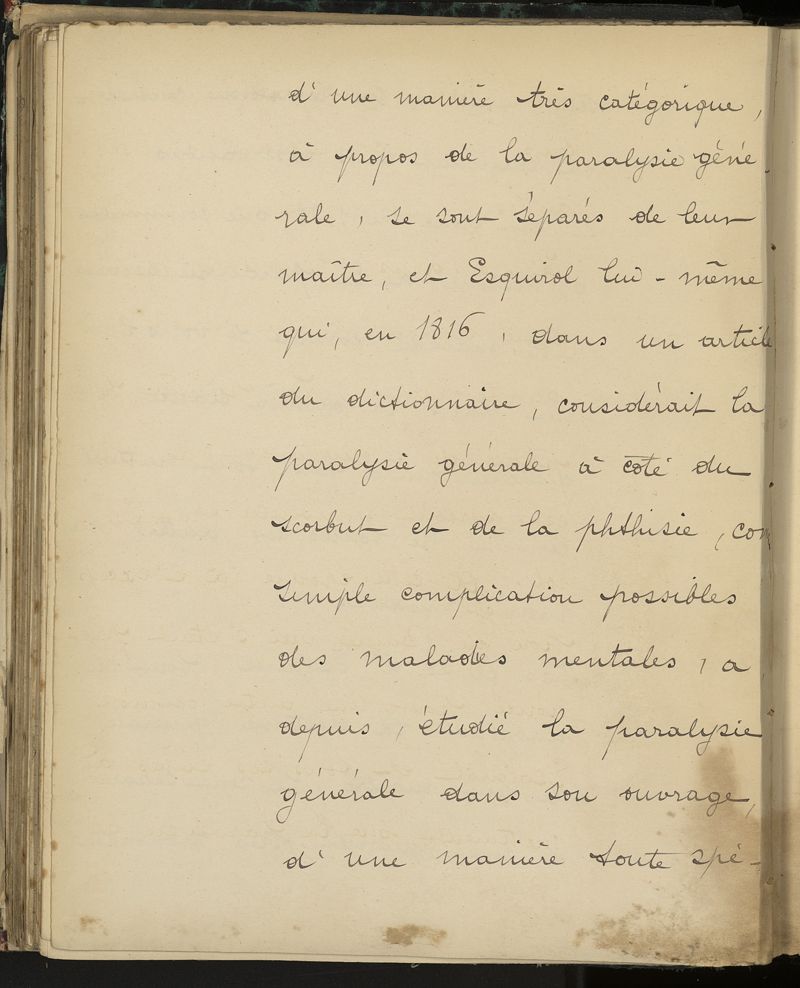 d'une manière très catégorique,
à propos de la paralysie géné
rale, se sont séparés de leur
maître, et Esquirol lui-même
qui, en 1816, dans un article
du dictionnaire, considérait la
paralysie générale à coté du
scorbut et de la phthisie, com
simple complication possibles
des maladies mentales, a
depuis, étudié la paralysie
générale dans son ouvrage,
d'une manière toute spé-